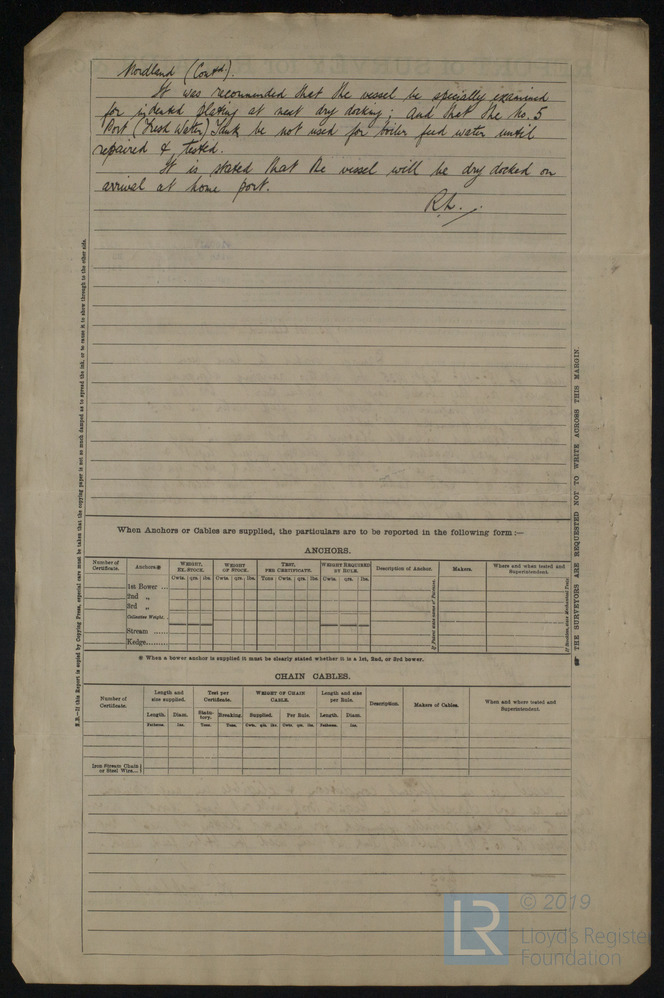 Nordland (Contd).
It was recommended that the vessel be specially examined
for indented plating at next dry docking; And that the No. 5
Port (Fresh Water) Tank be not used for boiler feed water until
repaired & tested.
It is stated that the vessel will be dry docked on
arrival at home port.
R.L.
N.B.—If this Report is copied by Copying Press, especial care must be taken that the copying paper is not so much damped as to spread the ink, or to cause it to show through to the other side.
THE SURVEYORS ARE REQUESTED NOT TO WRITE ACROSS THIS MARGIN.
When Anchors or Cables are supplied, the particulars are to be reported in the following form:—
ANCHORS.
Number of Certificate. Anchors※ WEIGHT, EX. STOCK. WEIGHT OF STOCK. TEST, PER CERTIFICATE. WEIGHT REQUIRED BY RULE. Description of Anchor. Makers. Where and when tested and Superintendent.
Cwts. qrs. lbs. Cwts. qrs. lbs. Tons Cwts. qrs. lbs. Cwts. qrs. lbs.
1st Bower ...
2nd „
3rd „
Collective Weight.
Stream
Kedge
※ When a bower anchor is supplied it must be clearly stated whether it is a 1st, 2nd, or 3rd bower.
CHAIN CABLES.
Number of Certificate. Length and size supplied. Test per Certificate. WEIGHT OF CHAIN CABLE. Length and size per Rule. Description. Makers of Cables. When and where tested and Superintendent.
Length. Diam. Statutory. Breaking. Supplied. Per Rule. Length. Diam.
Fathoms. Ins. Tons. Tons. Cwts. qrs. lbs. Cwts. qrs. lbs. Fathoms. Ins.
Iron Stream Chain
or Steel Wire...
© 2019
LR
Lloyd's Register
Foundation